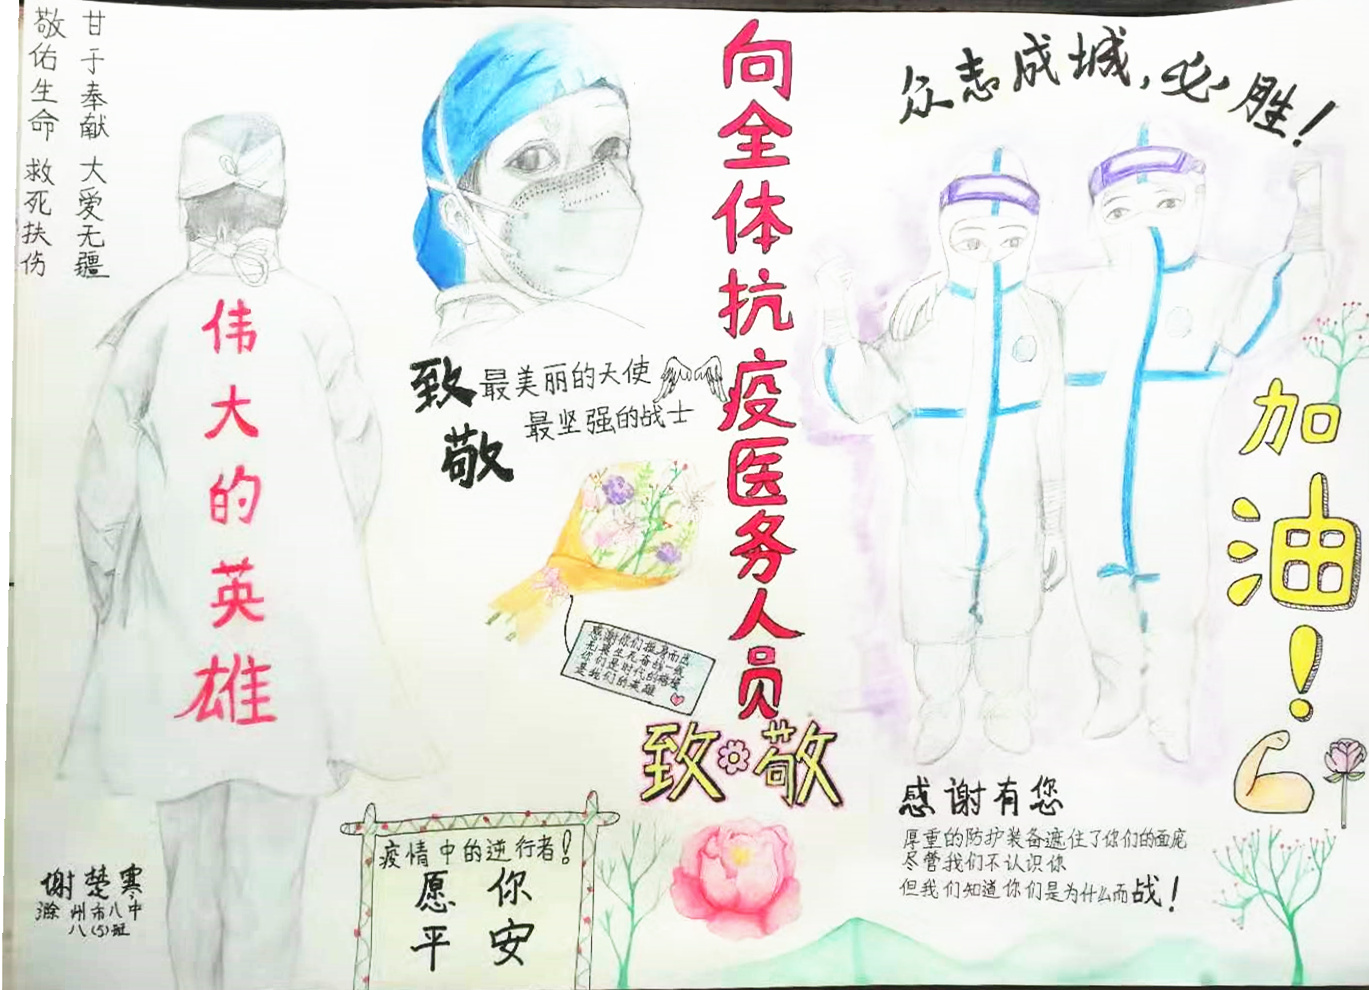 敬佑生命 救死扶伤
甘于奉献 大爱无疆
伟大的英雄
致敬
最美丽的天使
最坚强的战士
感谢你们挺身而出
无畏生死奋战一线
你们是时代的脊梁
是我们的英雄
向全体抗疫医务人员
致敬
众志成城,必胜!
加油!
感谢有您
厚重的防护装备遮住了你们的面庞
尽管我们不认识你
但我们知道你们是为什么而战!
疫情中的逆行者!
愿你
平安
谢楚寒
滁州市八中
八(5)班